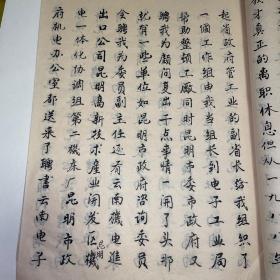 起省政府管工业的副省长给我组织了
一个工作组由我当组长到电子工业局
帮助整顿工厂同时昆明市政府又
聘我为顾问复出干点事情一开了头那
就有一些单位如昆明市政府咨询委员
会聘我为委员副主任还有云南机电进
出口公司昆明高新技术产业开发区机
电一体化协调组第二机床厂昆明市政
府机电办公室都送来了聘书云南电子
昆明
才真正的离职休息但从一九八